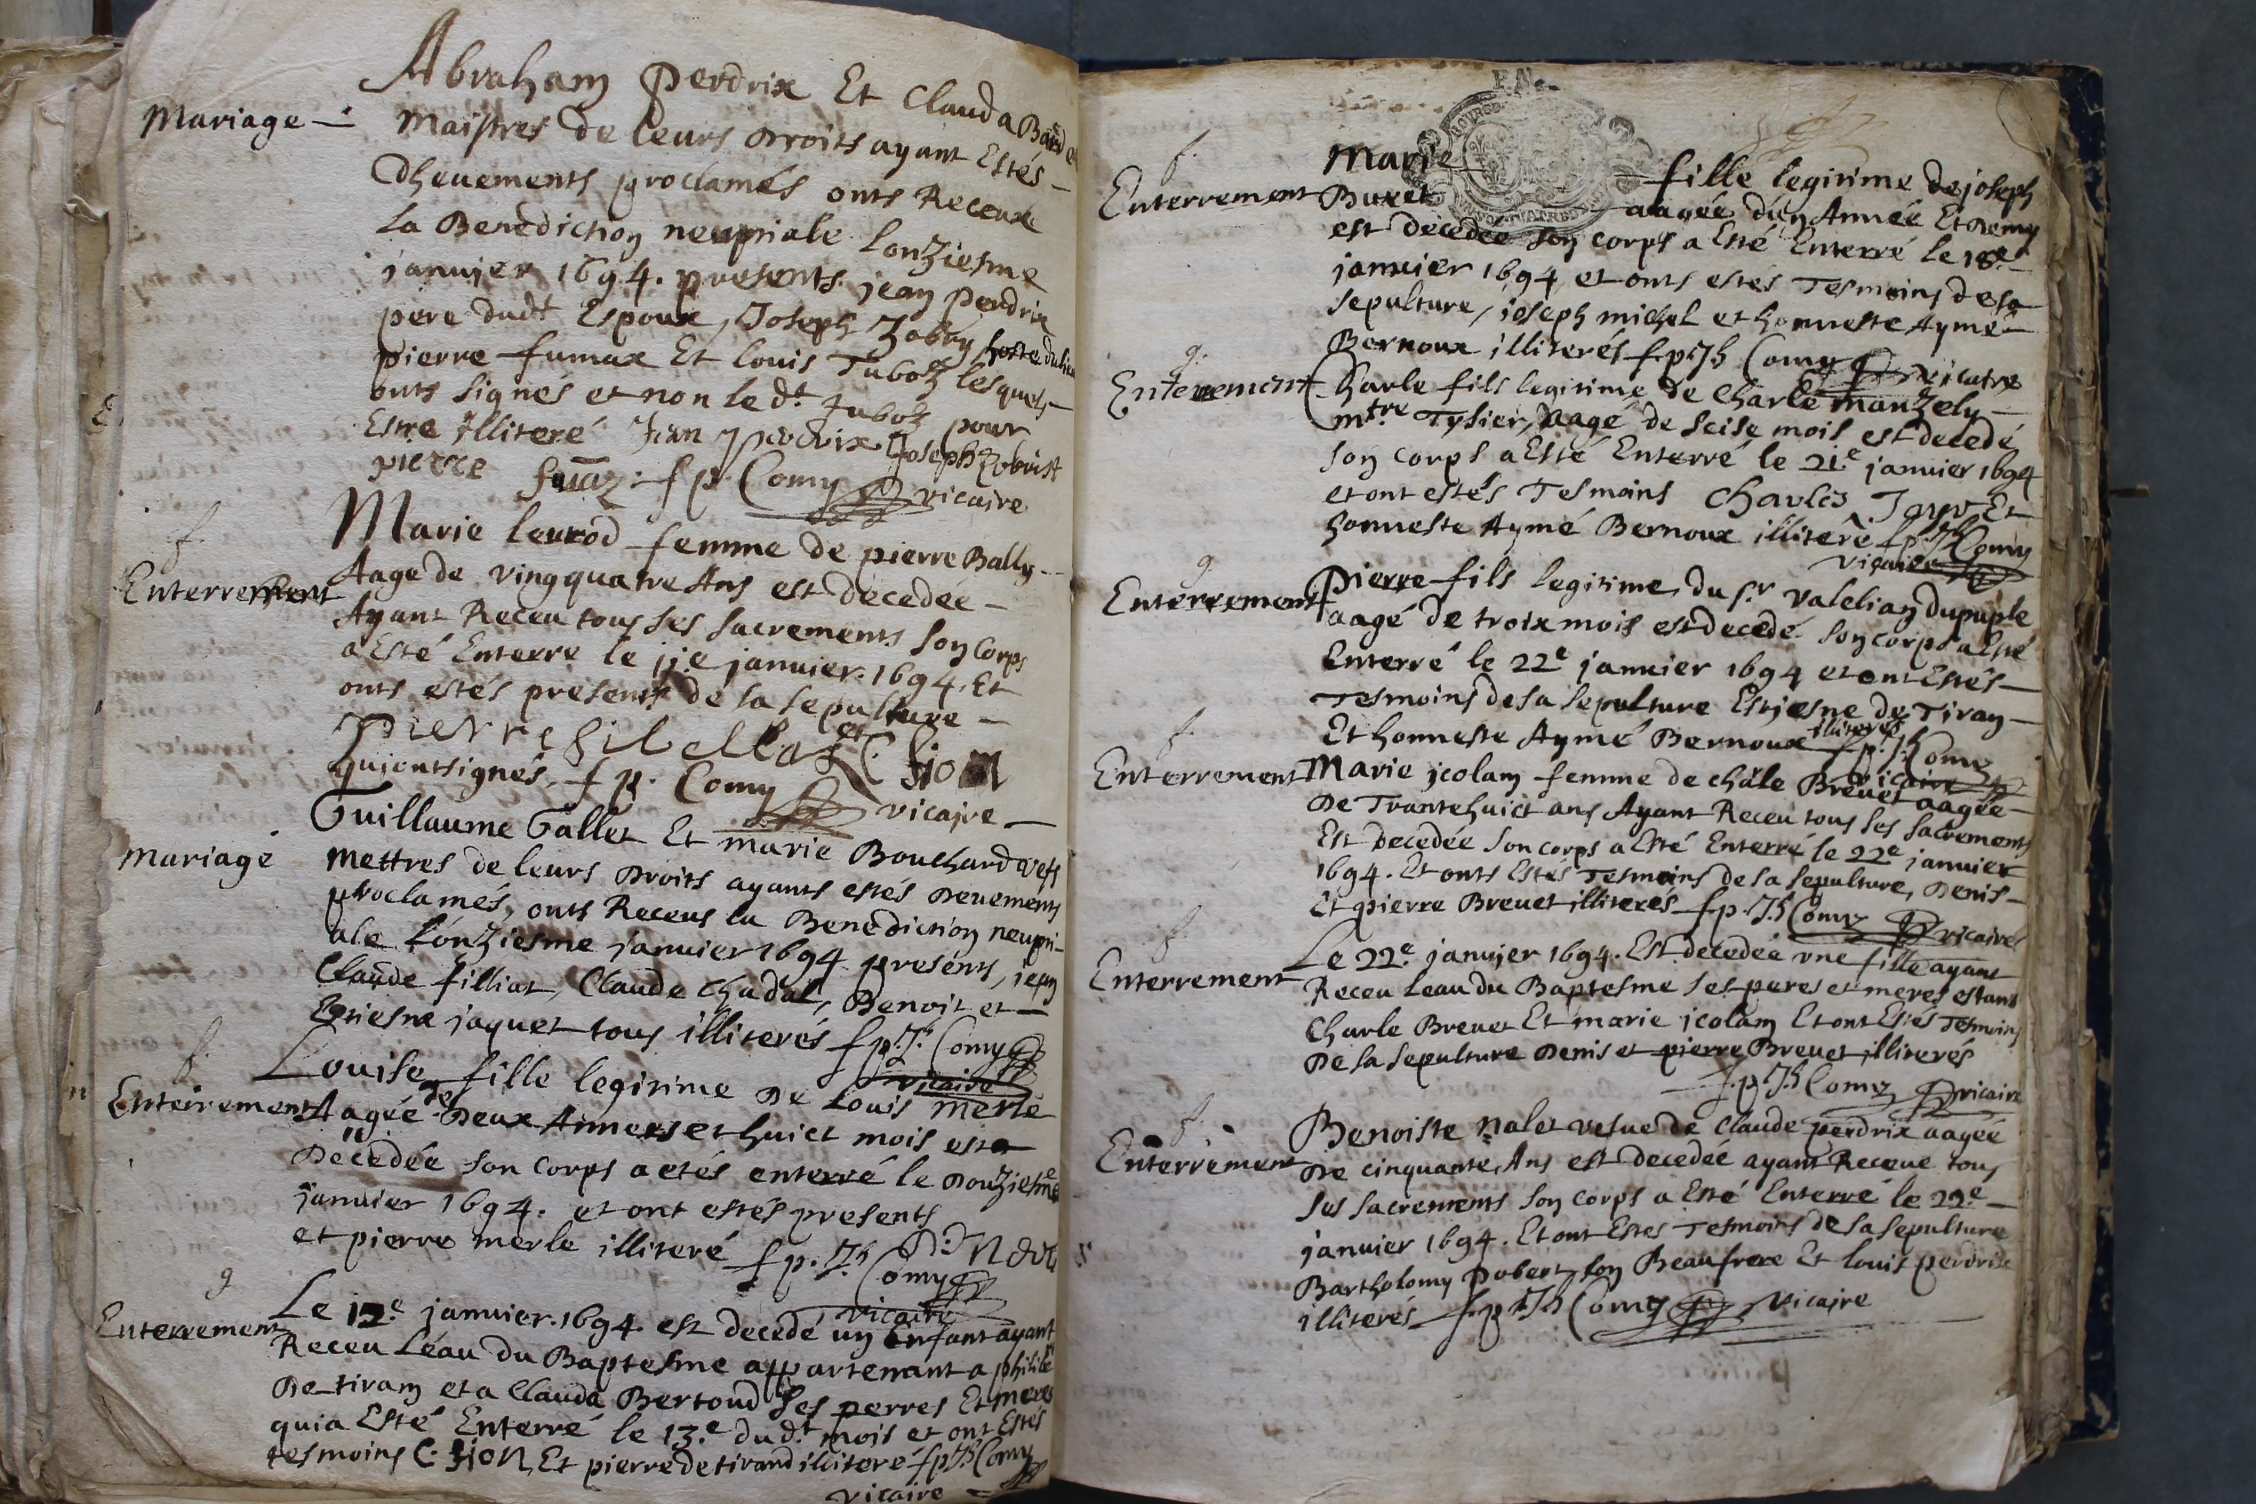 Abraham Perdrix Et Clauda
Mariage — Maistres de leurs Droits ayant Estés —
Dheuements proclamés onts Receux
La Benediction neupsiale lonziesme
januier 1694. presents jean Perdrix
pere dud.t Espoux, Joseph
pierre fumax Et louis Tuboz lesquels
onts signés et non le d.t Tuboz pour
Estre illiteré Jean perdrix Joseph
pierre f p. Comy vicaire
f.
Enterrement
Marie femme de pierre Bally
Aage de vingquatre Ans est decedée —
Ayant Receu tous ses sacrements son Corps
a Esté Enterre le 11.e januier. 1694. Et
onts estés presents de la sepulture —
Pierre et C
quiontsignés. f p. Comy vicaire —
Mariage
Guillaume Gallet Et marie Bouchard
Mettres de leurs Droits ayants estés Deuements
proclamés, onts Receus la Benediction neupsi-
ale lonziesme januier 1694 presents, jean
Claude filliat, Claude Chadal, Benoit et —
Estiesne jaquet tous illiterés f p. J. Comy
vicaire
f.
Enterrement
Louise fille legitime De Louis merle
Aagée de Deux Annees et huict mois est
Decedée son Corps a etés enterré le Douziesme
januier 1694. et ont estés presents
et pierre merle illiteré f p. Jh Comy
vicaire
g
Enterrement
Le 12.e januier. 1694 est decedé un Enfant ayant
Receu Léau du Baptesme appartenant a
De tiram et a Clauda Bertoud ses perres Et meres
quia Esté Enterré le 13.e dud.t mois et ont Estés
tesmoins C. Et pierre de tirand illiteré f p Jh Comy
vicaire
f.
Enterrement
Marie fille legitime de joseph
Buret aagée dun Année Et Demy
est decedée son corps a Esté Enterré le 18.e —
januier 1694 et onts estés Tesmoins de sa
sepulture, joseph michel et honneste Aymé —
Bernoux illiterés f p Jh Comy vicaire
g.
Enterrement
Charle fils legitime de Charle manzely —
m.tre Tysier, Aagé de seise mois est decedé
son corps a Esté Enterré le 21.e januier 1694
et ont estés Tesmoins Charles Et
honneste Aymé Bernoux illiteré f p. Jh Comy
vicaire
g.
Enterrement
Pierre fils legitime du s.r Valelian dupuple
aagé de troix mois est decedé son corps a Esté
Enterré le 22.e januier 1694 et ont Estés —
Tesmoins de sa sepulture Estiesne de Tiran —
Et honneste Aymé Bernoux illiterés f p. Jh Comy
vicaire
f.
Enterrement
Marie jcolam femme de chale Breuet aagée
De Trantehuict ans Ayant Receu tous ses sacrements
Est decedée son corps a Esté Enterré le 22.e januier
1694. Et onts Estés Tesmoins de sa sepulture, Denis —
Et pierre Breuet illiterés f p. Jh Comy vicaire
f
Enterrement
Le 22.e januier 1694. Est decedeé vne fille ayant
Receu Leau du Baptesme ses peres et meres estant
Charle Breuet Et marie jcolam Et ont Estés Tesmoins
De sa sepulture Denis et pierre Breuet illiterés
f. p. Jh Comy vicaire
f.
Enterrement
Benoiste nalet vesue de Claude perdrix aagée
De cinquante Ans est decedeé ayant Receue tous
ses sacrements son corps a Esté Enterré le 29.e —
januier 1694. Et ont Estes Tesmoins de sa sepulture
Bartholomy pobert son Beaufrere Et louis perdrix
illiterés f. p Jh Comy vicaire